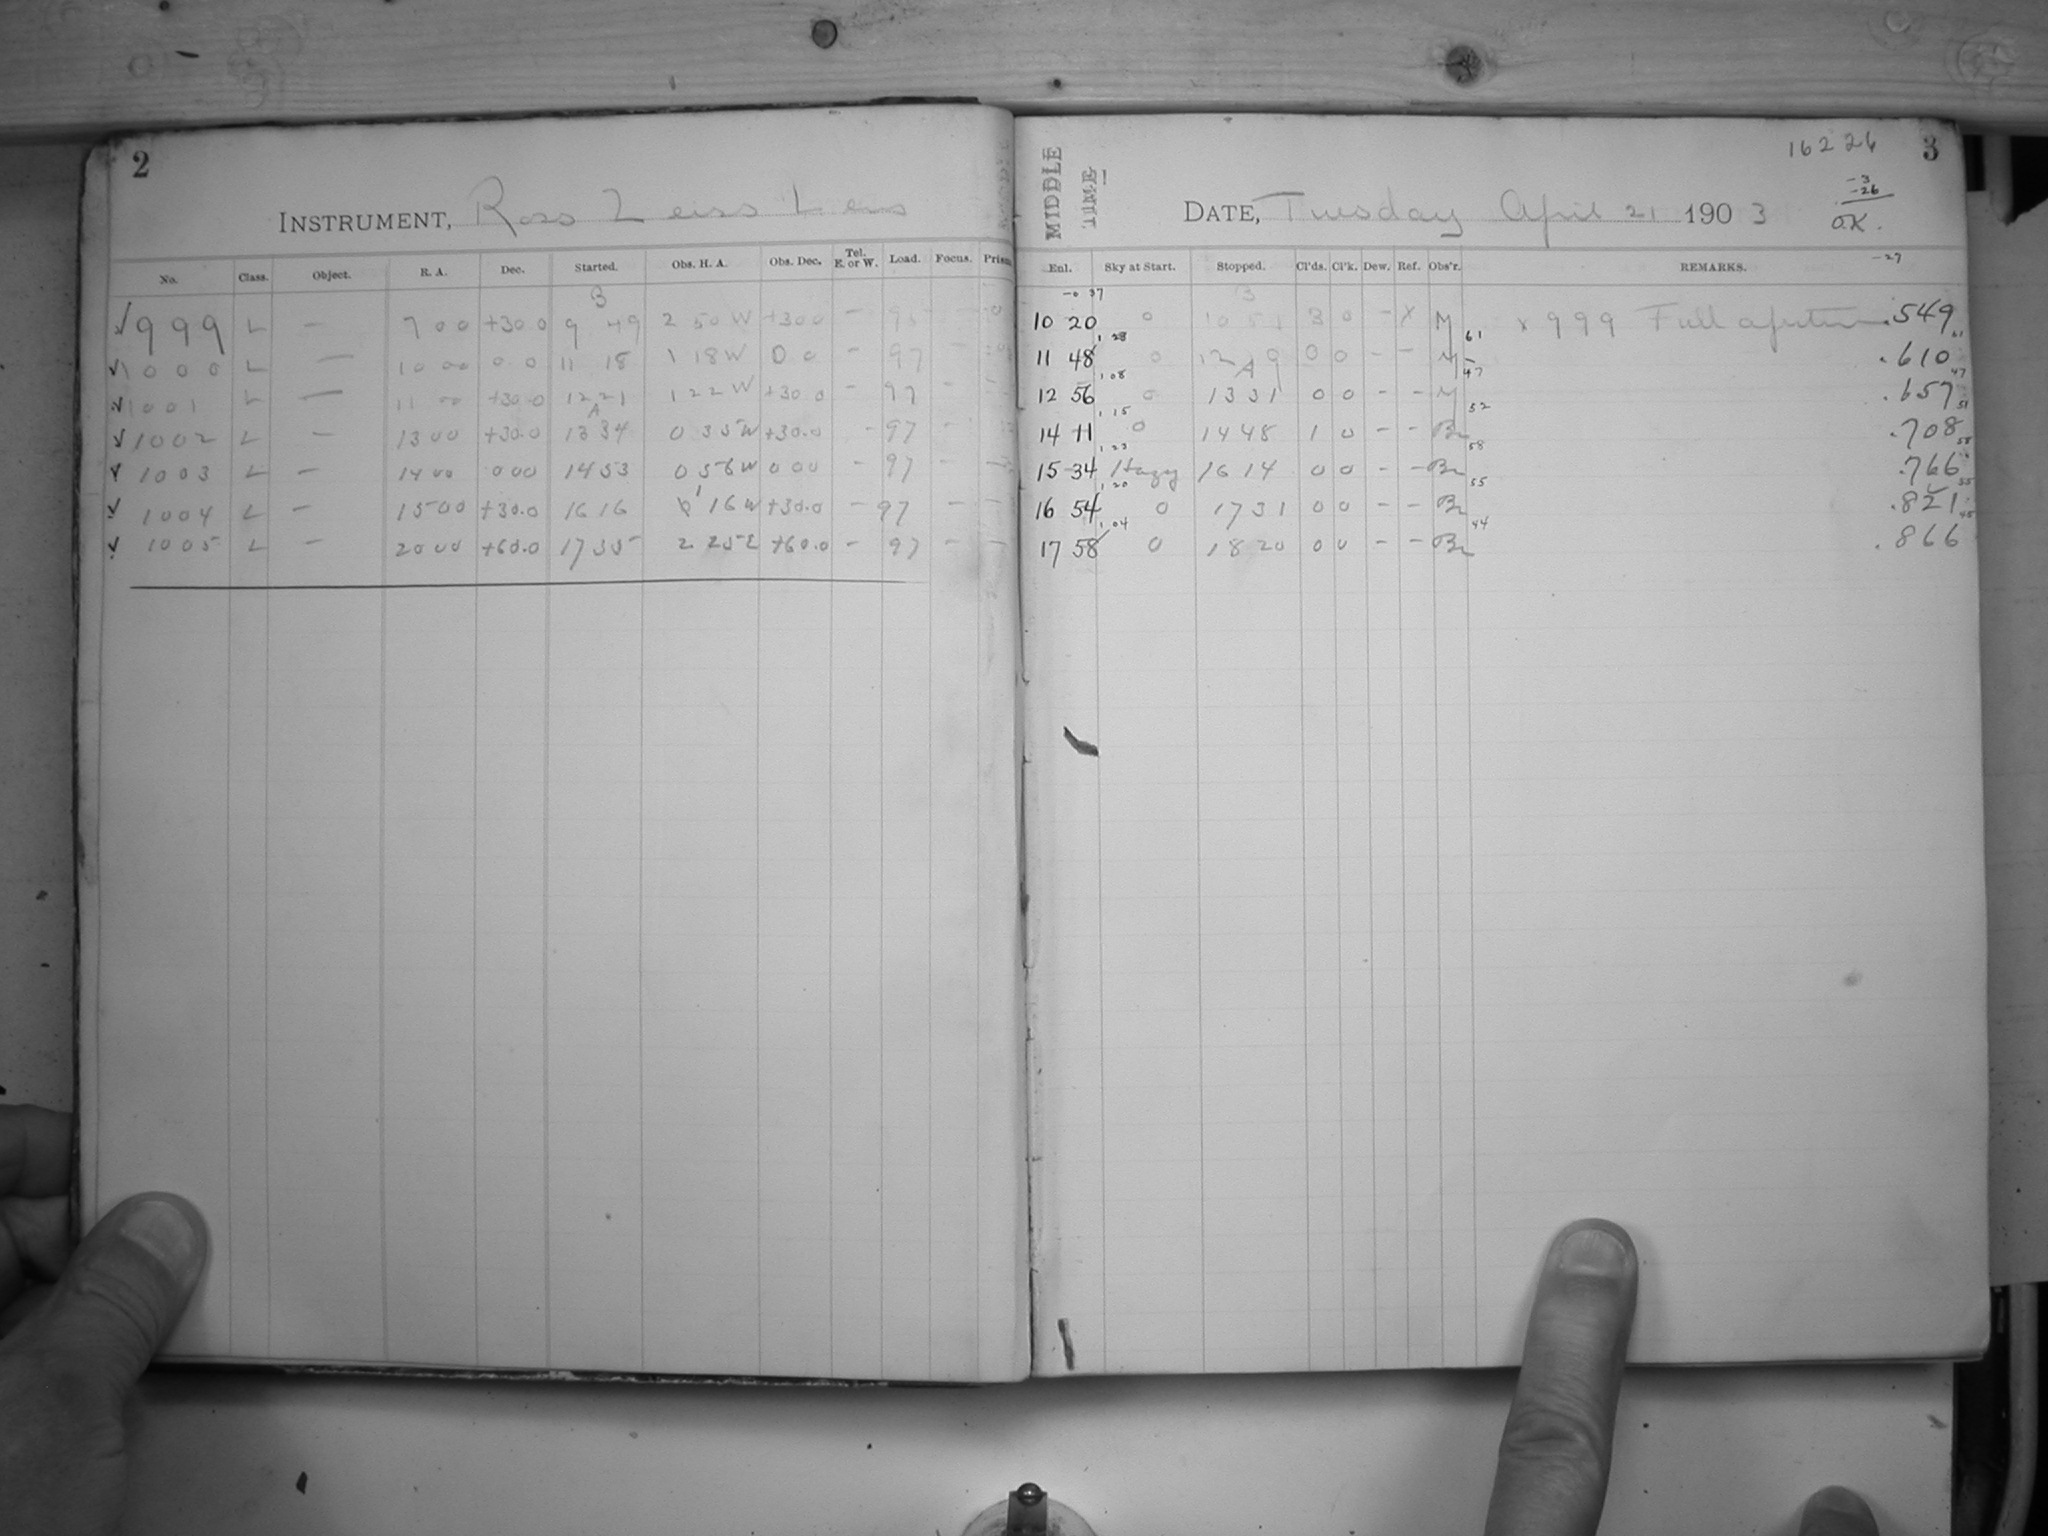 2
INSTRUMENT, Ross Zeiss Lens
No. Class. Object. R. A. Dec. Started. Obs. H. A. Obs. Dec. Tel. E. or W. Load. Focus. Prism
B
√ 999 L — 7 00 +30 0 9 49 2 50 W +30 0 –
√ 1000 L — 10 00 0 0 11 18 1 18 W 0 0 – 97 –
√ 1001 L — 11 00 +30 0 12 21 1 22 W +30 0 – 97 –
A
√ 1002 L — 13 00 +30.0 13 34 0 35 W +30.0 – 97 –
√ 1003 L — 14 00 0 00 14 53 0 56 W 0 00 – 97 –
√ 1004 L — 15 00 +30.0 16 16 1 16 W +30.0 – 97 –
√ 1005 L — 20 00 +60.0 17 35 2 25 E +60.0 – 97 –
MIDDLE TIME
16226
3
–3
–26
O.K.
DATE, Tuesday April 21 1903
–27
Enl. Sky at Start. Stopped. Cl'ds. Cl'k. Dew. Ref. Obs'r. REMARKS.
B
10 20 0 10 51 3 0 – X M x 999 Full aperture .549
1 28 61 61
11 48 0 12 19 0 0 – – M .610
1 08 47 47
A
12 56 0 13 31 0 0 – – M .657
1 15 52 51
14 11 0 14 48 1 0 – – Br .708
1 23 58 58
15 34 Hazy 16 14 0 0 – – Br .766
1 20 55 55
16 54 0 17 31 0 0 – – Br .821
1 04 44 45
17 58 0 18 20 0 0 – – Br .866